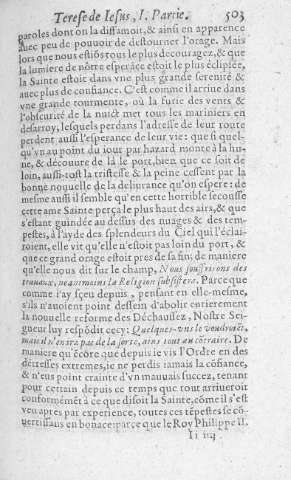 Terese de Iesus, I. Partie. 503
paroles dont on la diffamoit, & ainsi en apparence
avec peu de pouvoir de destourner l'orage. Mais
lors que nous estiõs tous le plus decouragez, & que
la lumiere de nôtre esperãce estoit le plus éclipsée,
la Sainte estoit dans vne plus grande serenité &
avec plus de confiance. C'est comme il arriue dans
vne grande tourmente, où la furie des vents &
l'obscurité de la nuict met tous les mariniers en
desarroy, lesquels perdans l'adresse de leur route
perdent aussi l'esperance de leur vie: que si quel-
qu'vn au point du iour par hazard monte à la hu-
ne, & découure de là le port, bien que ce soit de
loin, aussi-tost la tristesse & la peine cessent par la
bonne nouuelle de la deliurance qu'on espere: de
mesme aussi il semble qu'en cette horrible secousse
cette ame Sainte perça le plus haut des airs, & que
s'estant guindée au dessus des nuages & des tem-
pestes, à l'ayde des splendeurs du Ciel qui l'éclai-
roient, elle vit qu'elle n'estoit pas loin du port, &
que ce grand orage estoit pres de sa fin; de maniere
qu'elle nous dit sur le champ, Nous souffrirons des
trauaux, neantmoins la Religion subsistera. Parce que
comme i'ay sçeu depuis, pensant en elle-mesme,
s'ils n'auoient point dessein d'abolir entierement
la nouuelle reforme des Déchaussez, Nostre Sei-
gneur luy respõdit cecy: Quelques-vns le voudroiẽt,
mais il n'en ira pas de la sorte, ains tout au cõtraire. De
maniere qu'ẽcõre que depuis ie vis l'Ordre en des
détresses extremes, ie ne perdis iamais la cõfiance,
& n'eus point crainte d'vn mauuais succez, tenant
pour certain depuis ce temps que tout arriueroit
conformémẽt à ce que disoit la Sainte, cõme il s'est
veu apres par experience, toutes ces tẽpestes se cõ-
uertissans en bonace: parce que le Roy Philippe II.
Ii iiij